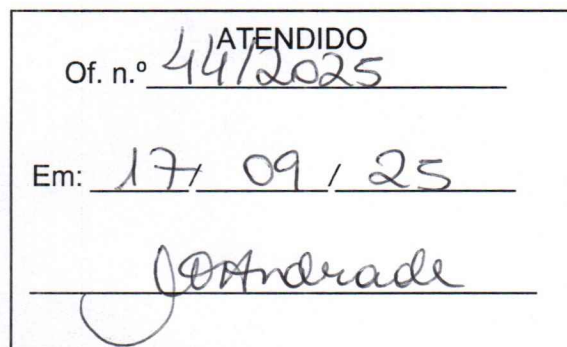 ATENDIDO
Of. n.º 44/2025
Em: 17/ 09 / 25
Andrade